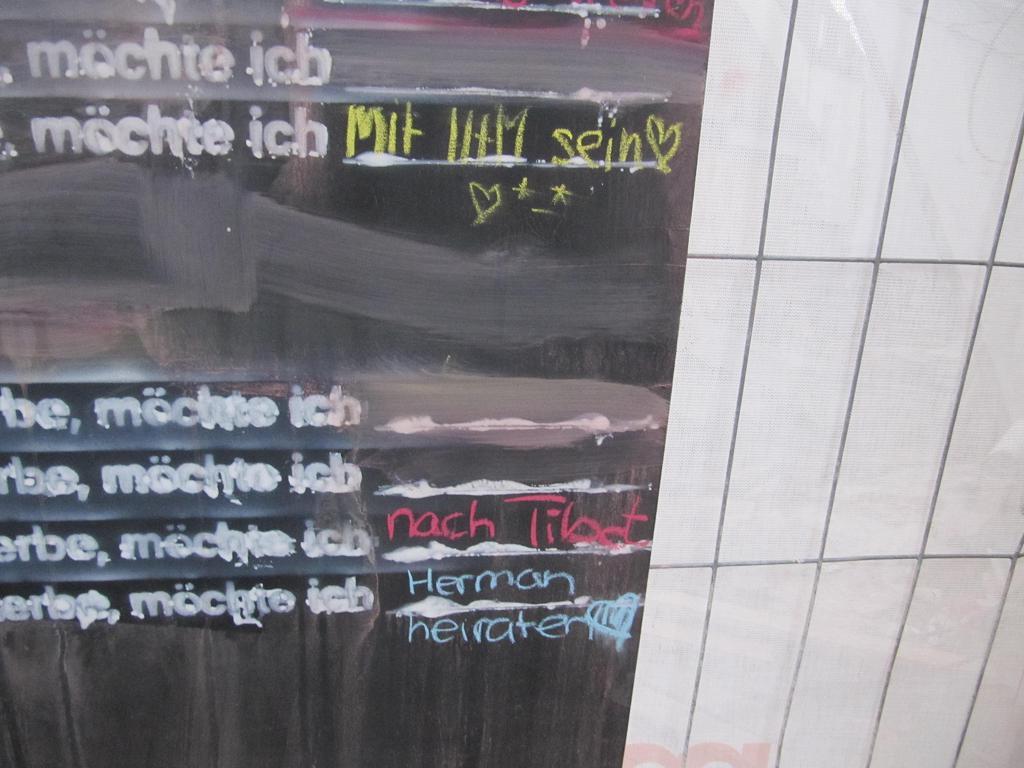 möchte ich
, möchte ich Mit sein
be, möchte ich
rbe, möchte ich
erbe, möchte ich nach Tibet
erbe, möchte ich Herman
heiraten